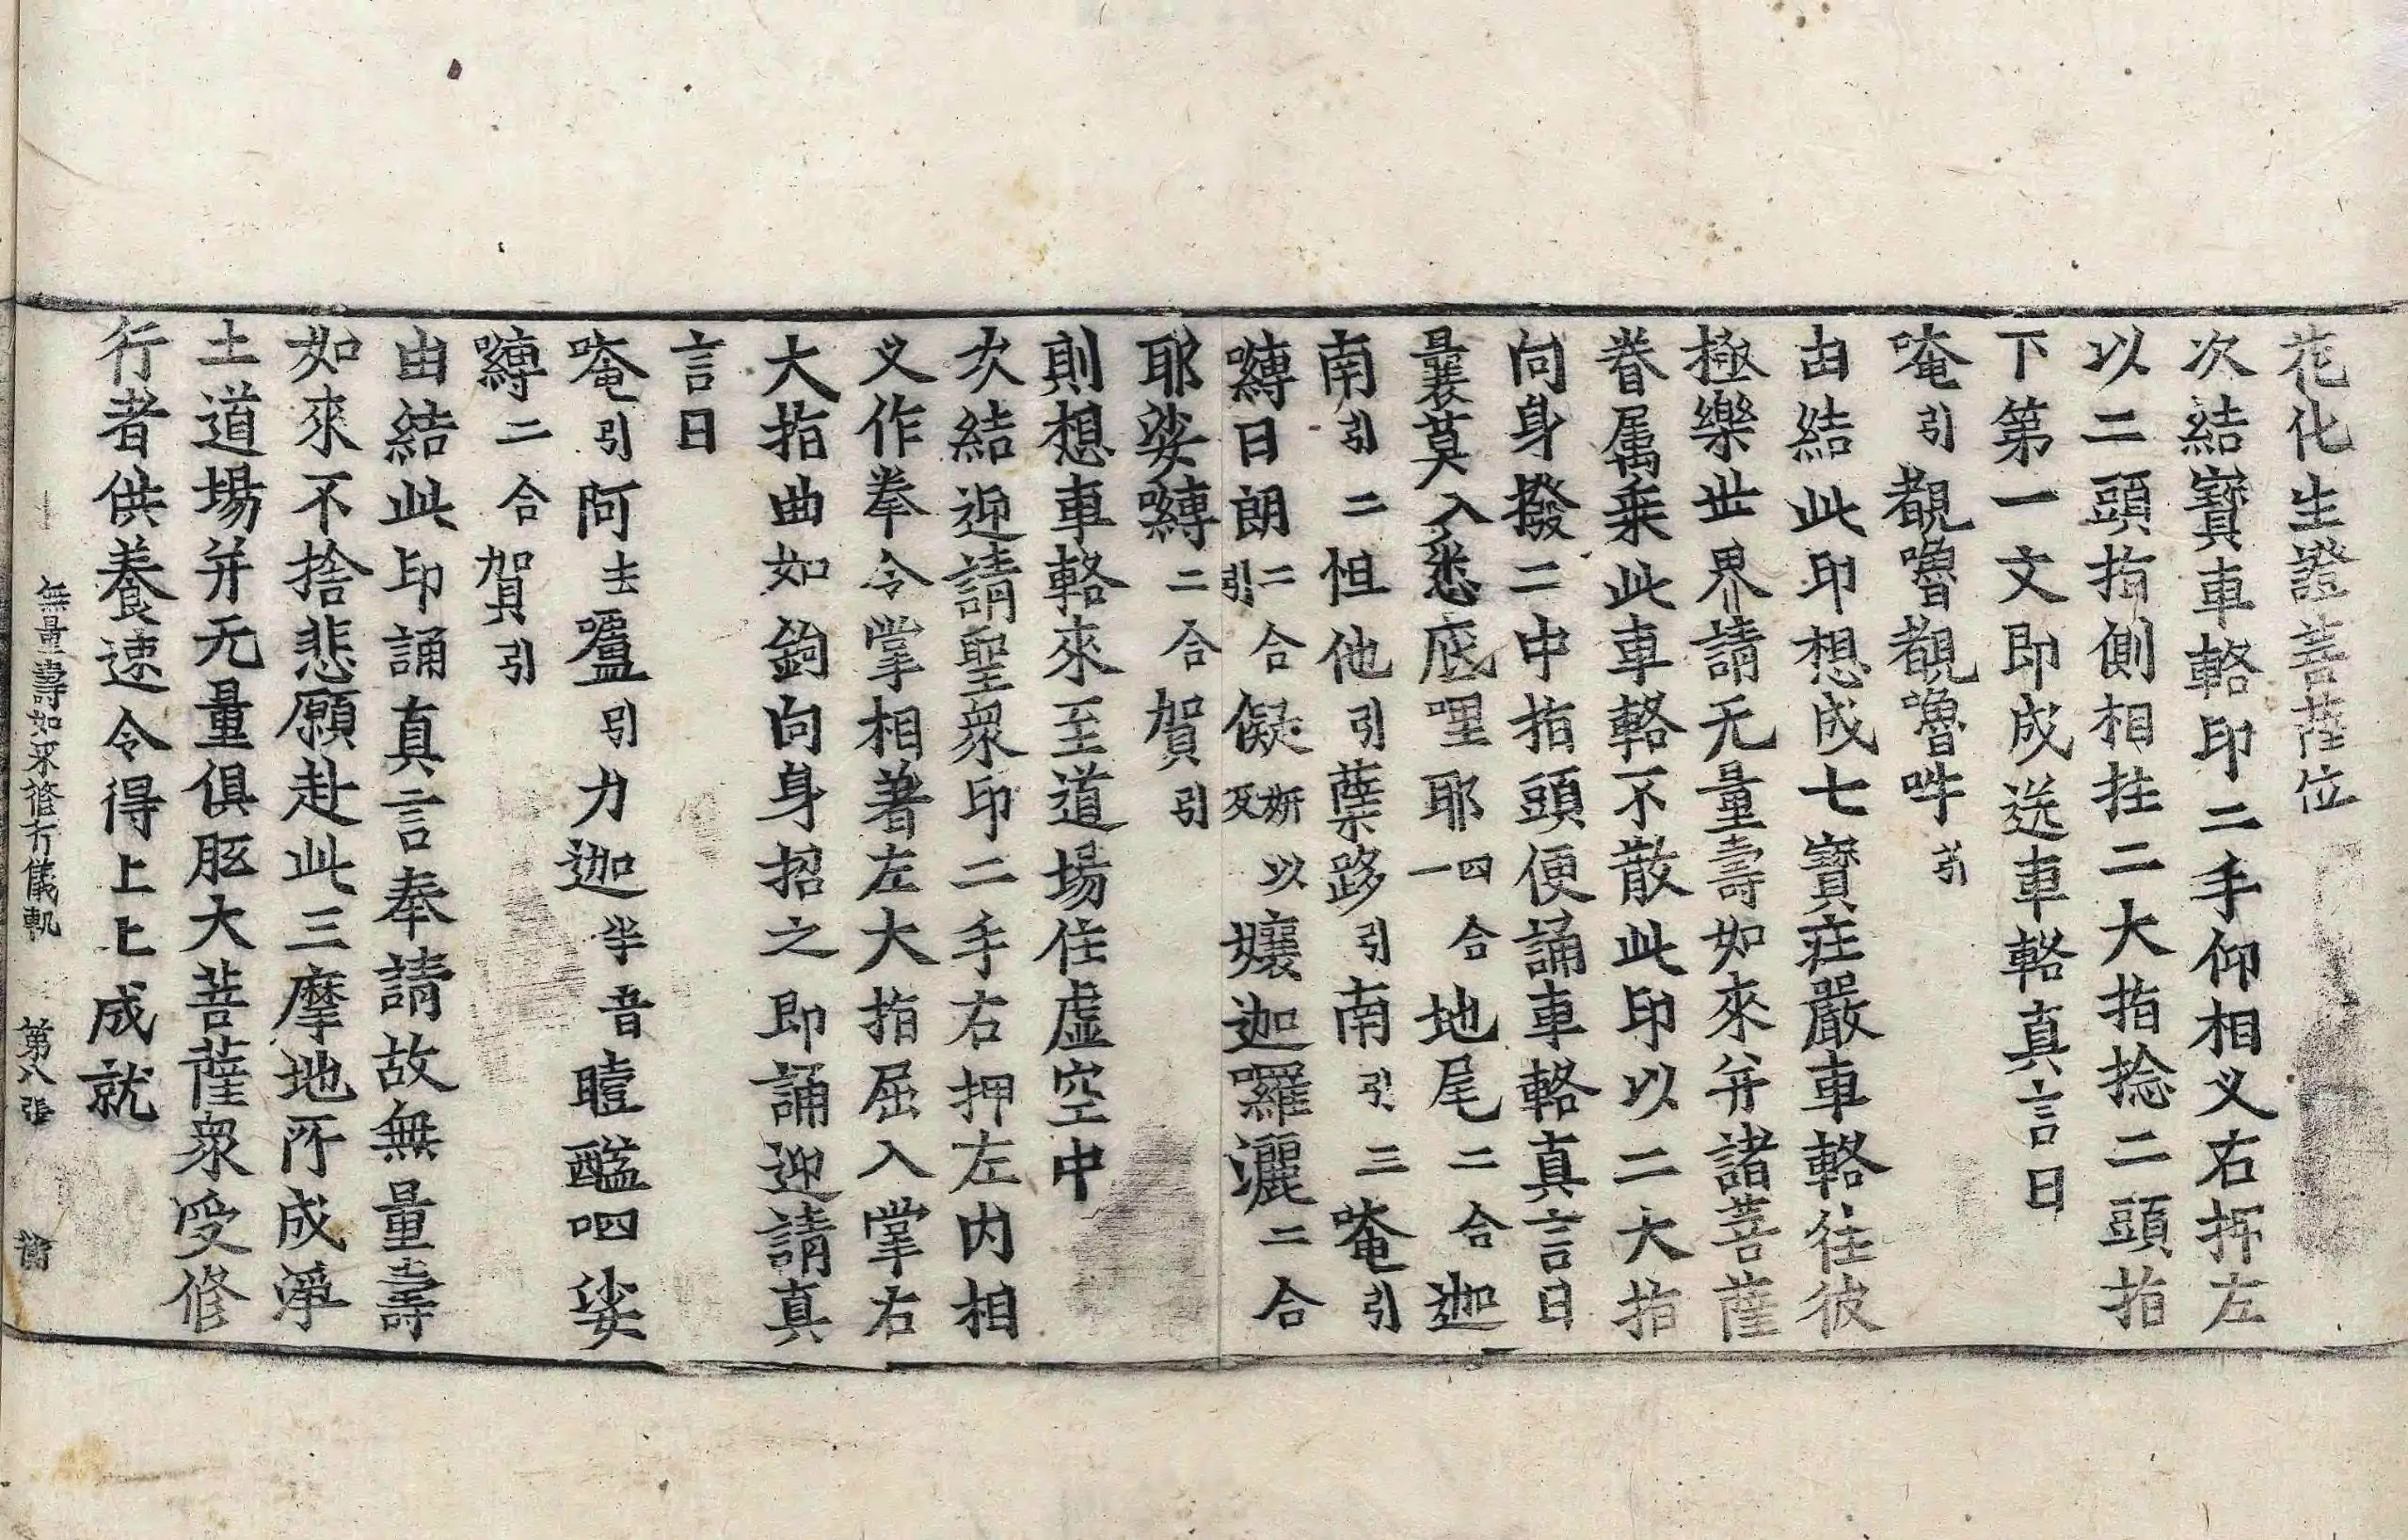 花化生證菩薩位
次結寶車輅印二手仰相叉右押左
以二頭指側相拄二大指捻二頭指
下第一文即成送車輅真言曰
唵引覩嚕覩嚕吽引
由結此印想成七寶莊嚴車輅往彼
極樂世界請无量壽如來并諸菩薩
眷属乗此車輅不散此印以二大指
向身撥二中指頭便誦車輅真言曰
曩莫入悉底哩耶四合一地尾二合迦
南引二怛他引蘖跢引南引三唵引
嚩日朗二合引儗妍以反孃迦囉灑二合
耶娑嚩二合賀引
則想車輅來至道場住虛空中
次結迎請聖衆印二手右押左内相
叉作拳令掌相著左大指屈入掌右
大指曲如鉤向身招之即誦迎請真
言曰
唵引阿去嚧引力迦半音曀醯呬娑
嚩二合賀引
由結此印誦真言奉請故無量壽
如來不捨悲願赴此三摩地所成淨
土道場并无量俱胝大菩薩衆受修
行者供養速令得上上成就
無量壽如來修行儀軌 第八張